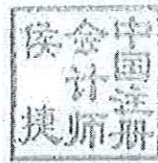 中国注册
会计师
侯捷